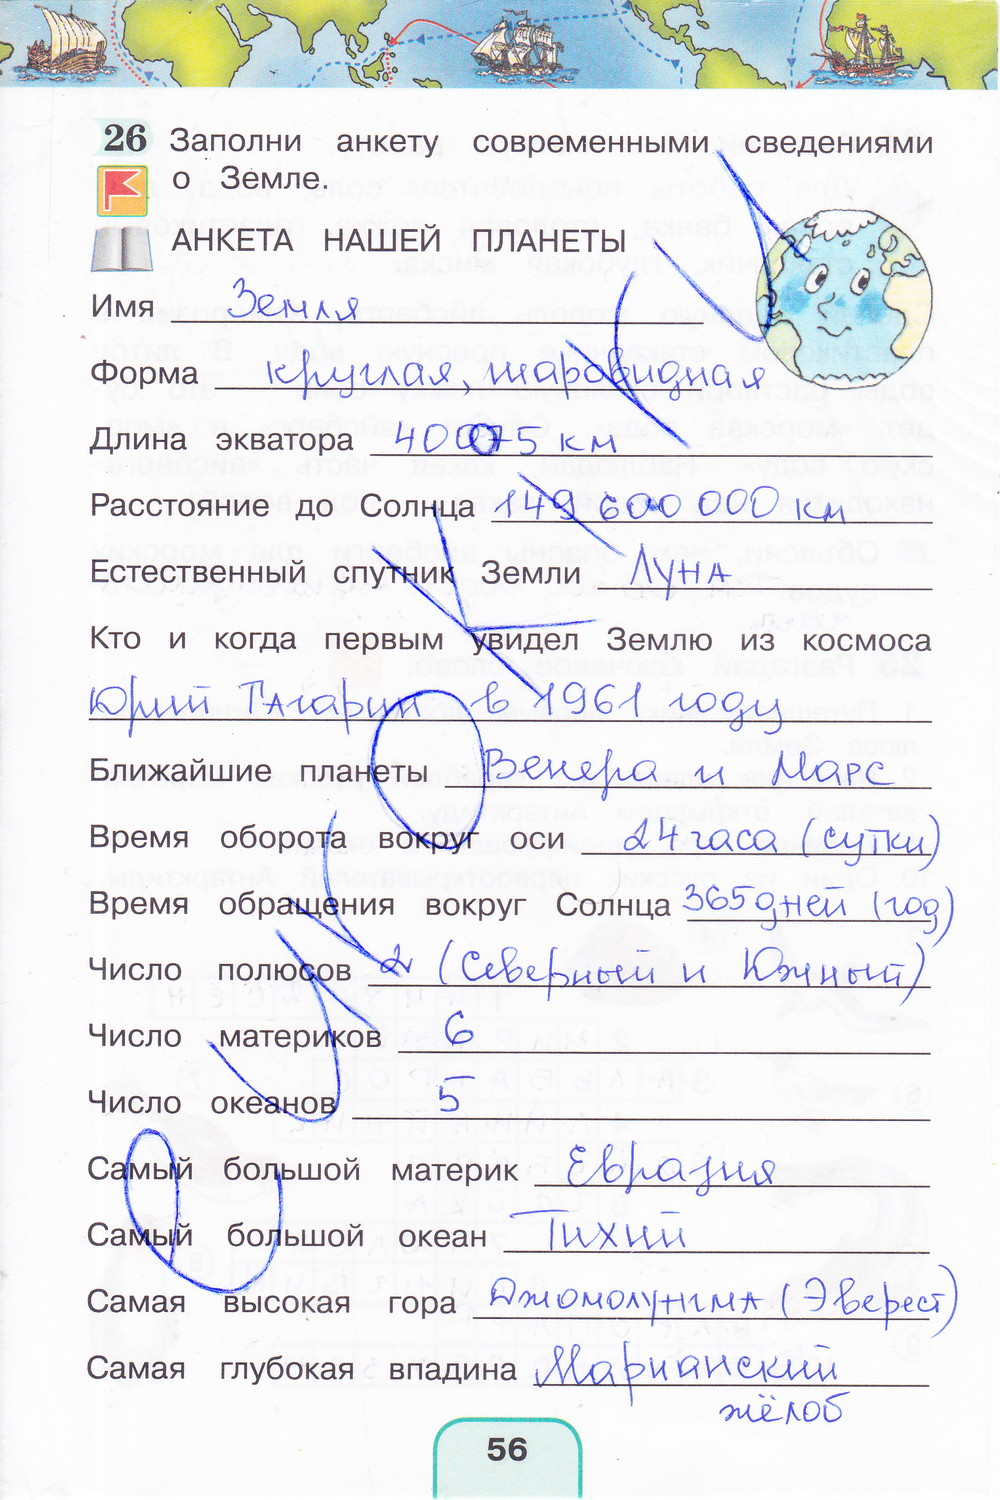 26 Заполни анкету современными сведениями
о Земле.
АНКЕТА НАШЕЙ ПЛАНЕТЫ
Имя Земля
Форма круглая, шаровидная
Длина экватора 40075 км
Расстояние до Солнца 149 600 000 км
Естественный спутник Земли Луна
Кто и когда первым увидел Землю из космоса
Юрий Гагарин в 1961 году
Ближайшие планеты Венера и Марс
Время оборота вокруг оси 24 часа (сутки)
Время обращения вокруг Солнца 365 дней (год)
Число полюсов 2 (Северный и Южный)
Число материков 6
Число океанов 5
Самый большой материк Евразия
Самый большой океан Тихий
Самая высокая гора Джомолунгма (Эверест)
Самая глубокая впадина Марианский
жёлоб
56